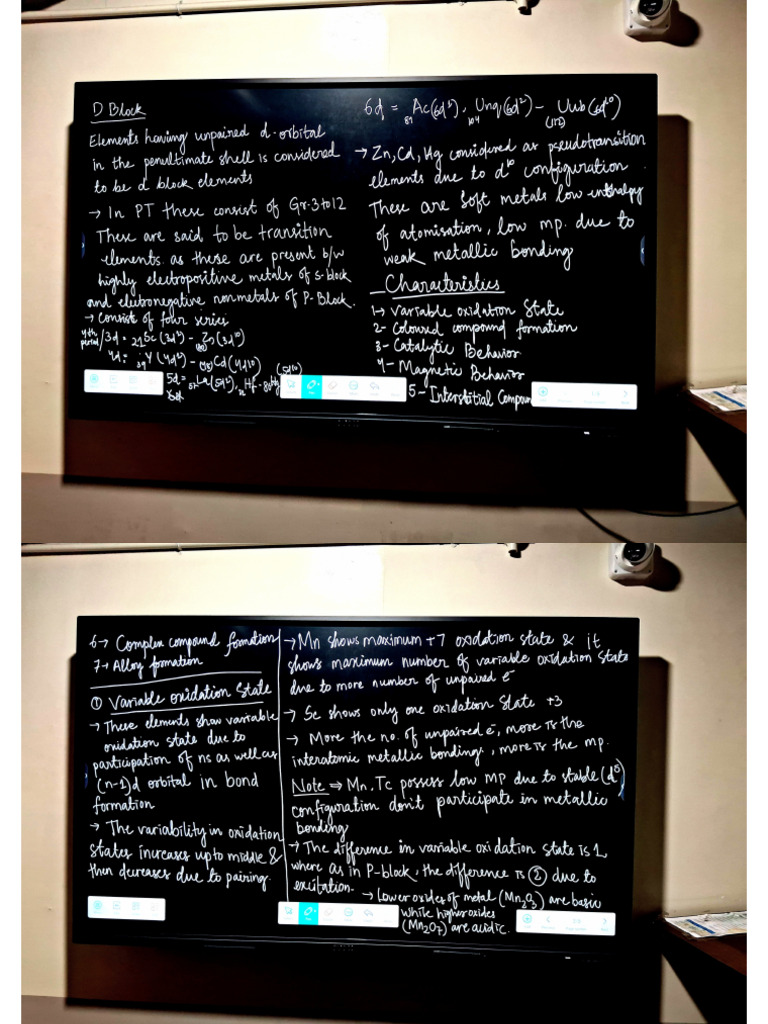 D Block
Elements having unpaired d-orbital
in the penultimate shell is considered
to be d block elements
→ In PT these consist of Gr.3 to 12
These are said to be transition
elements as these are present b/w
highly electropositive metals of s-block
and electronegative nonmetals of P-Block.
→ Consist of four series
4th period / 3d = 21Sc (3d¹) - Zn(3d¹⁰)
4d = 39Y (4d¹) - (48)Cd(4d¹⁰)
5d = 57La(5d¹), Hf - 80Hg (5d¹⁰)
6d = 89Ac(6d¹), 104Unq(6d²) - Uub(6d¹⁰) (112)
→ Zn, Cd, Hg considered as pseudotransition
elements due to d¹⁰ configuration.
These are soft metals low enthalpy
of atomisation, low mp. due to
weak metallic bonding
Characteristics
1→ Variable oxidation State
2- Coloured compound formation
3- Catalytic Behavior
4- Magnetic Behavior
5- Interstitial Compoun
6→ Complex compound formation
7→ Alloy formation
① Variable oxidation State
→ These elements show variable
oxidation state due to
participation of ns as well as
(n-1)d orbital in bond
formation
→ The variability in oxidation
states increases upto middle &
then decreases due to pairing.
→ Mn shows maximum +7 oxidation state & it
shows maximum number of variable oxidation state
due to more number of unpaired e⁻
→ Sc shows only one oxidation State +3
→ More the no. of unpaired e⁻, more is the
interatomic metallic bonding, more is the mp.
Note ⇒ Mn, Tc possess low MP due to stable (d⁵)
configuration don't participate in metallic
bonding
→ The difference in variable oxidation state is 1,
where as in P-block, the difference is ② due to
excitation.
→ Lower oxides of metal (Mn₂O₃) are basic
while higher oxides
(Mn₂O₇) are acidic.